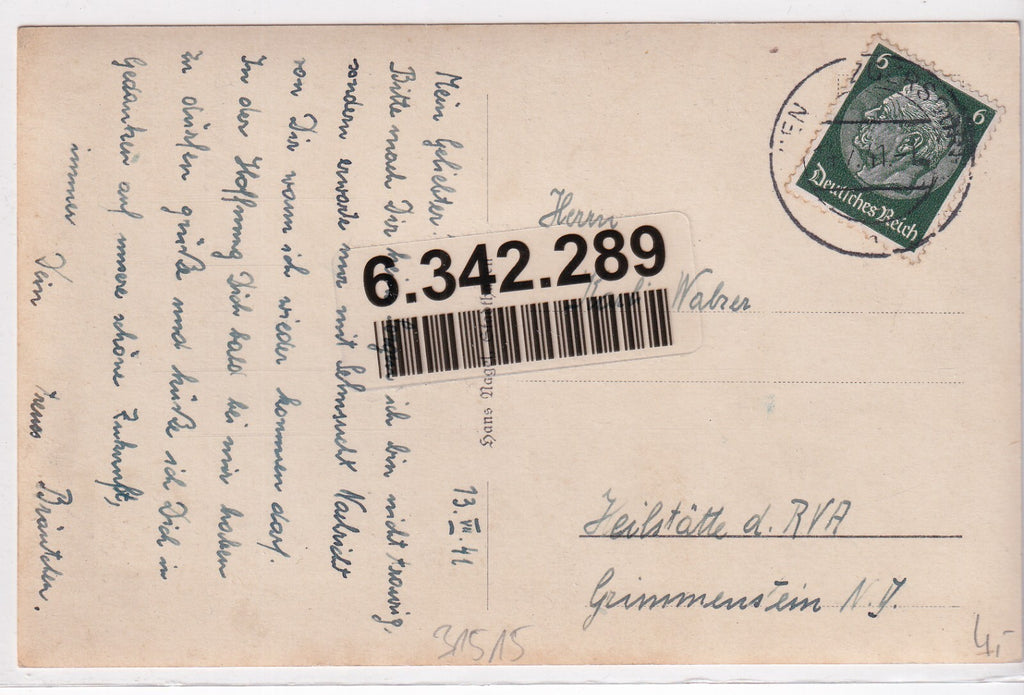 Mein Geliebter!
13.VII.41
Bitte mach Dir ich bin nicht traurig,
sondern erwarte nur mit Sehnsucht Nachricht
von Dir wann ich wieder kommen darf.
In der Hoffnung Dich bald bei mir haben
zu dürfen grüße und küße ich Dich in
Gedanken auf unsere schöne Zukunft,
immer Dein treues Bräutchen.
Hans Nagel
6.342.289
Herrn
Walzer
Heilstätte d. RVA
Grimmenstein N.D.
6
6
Deutsches Reich
31515
4,-